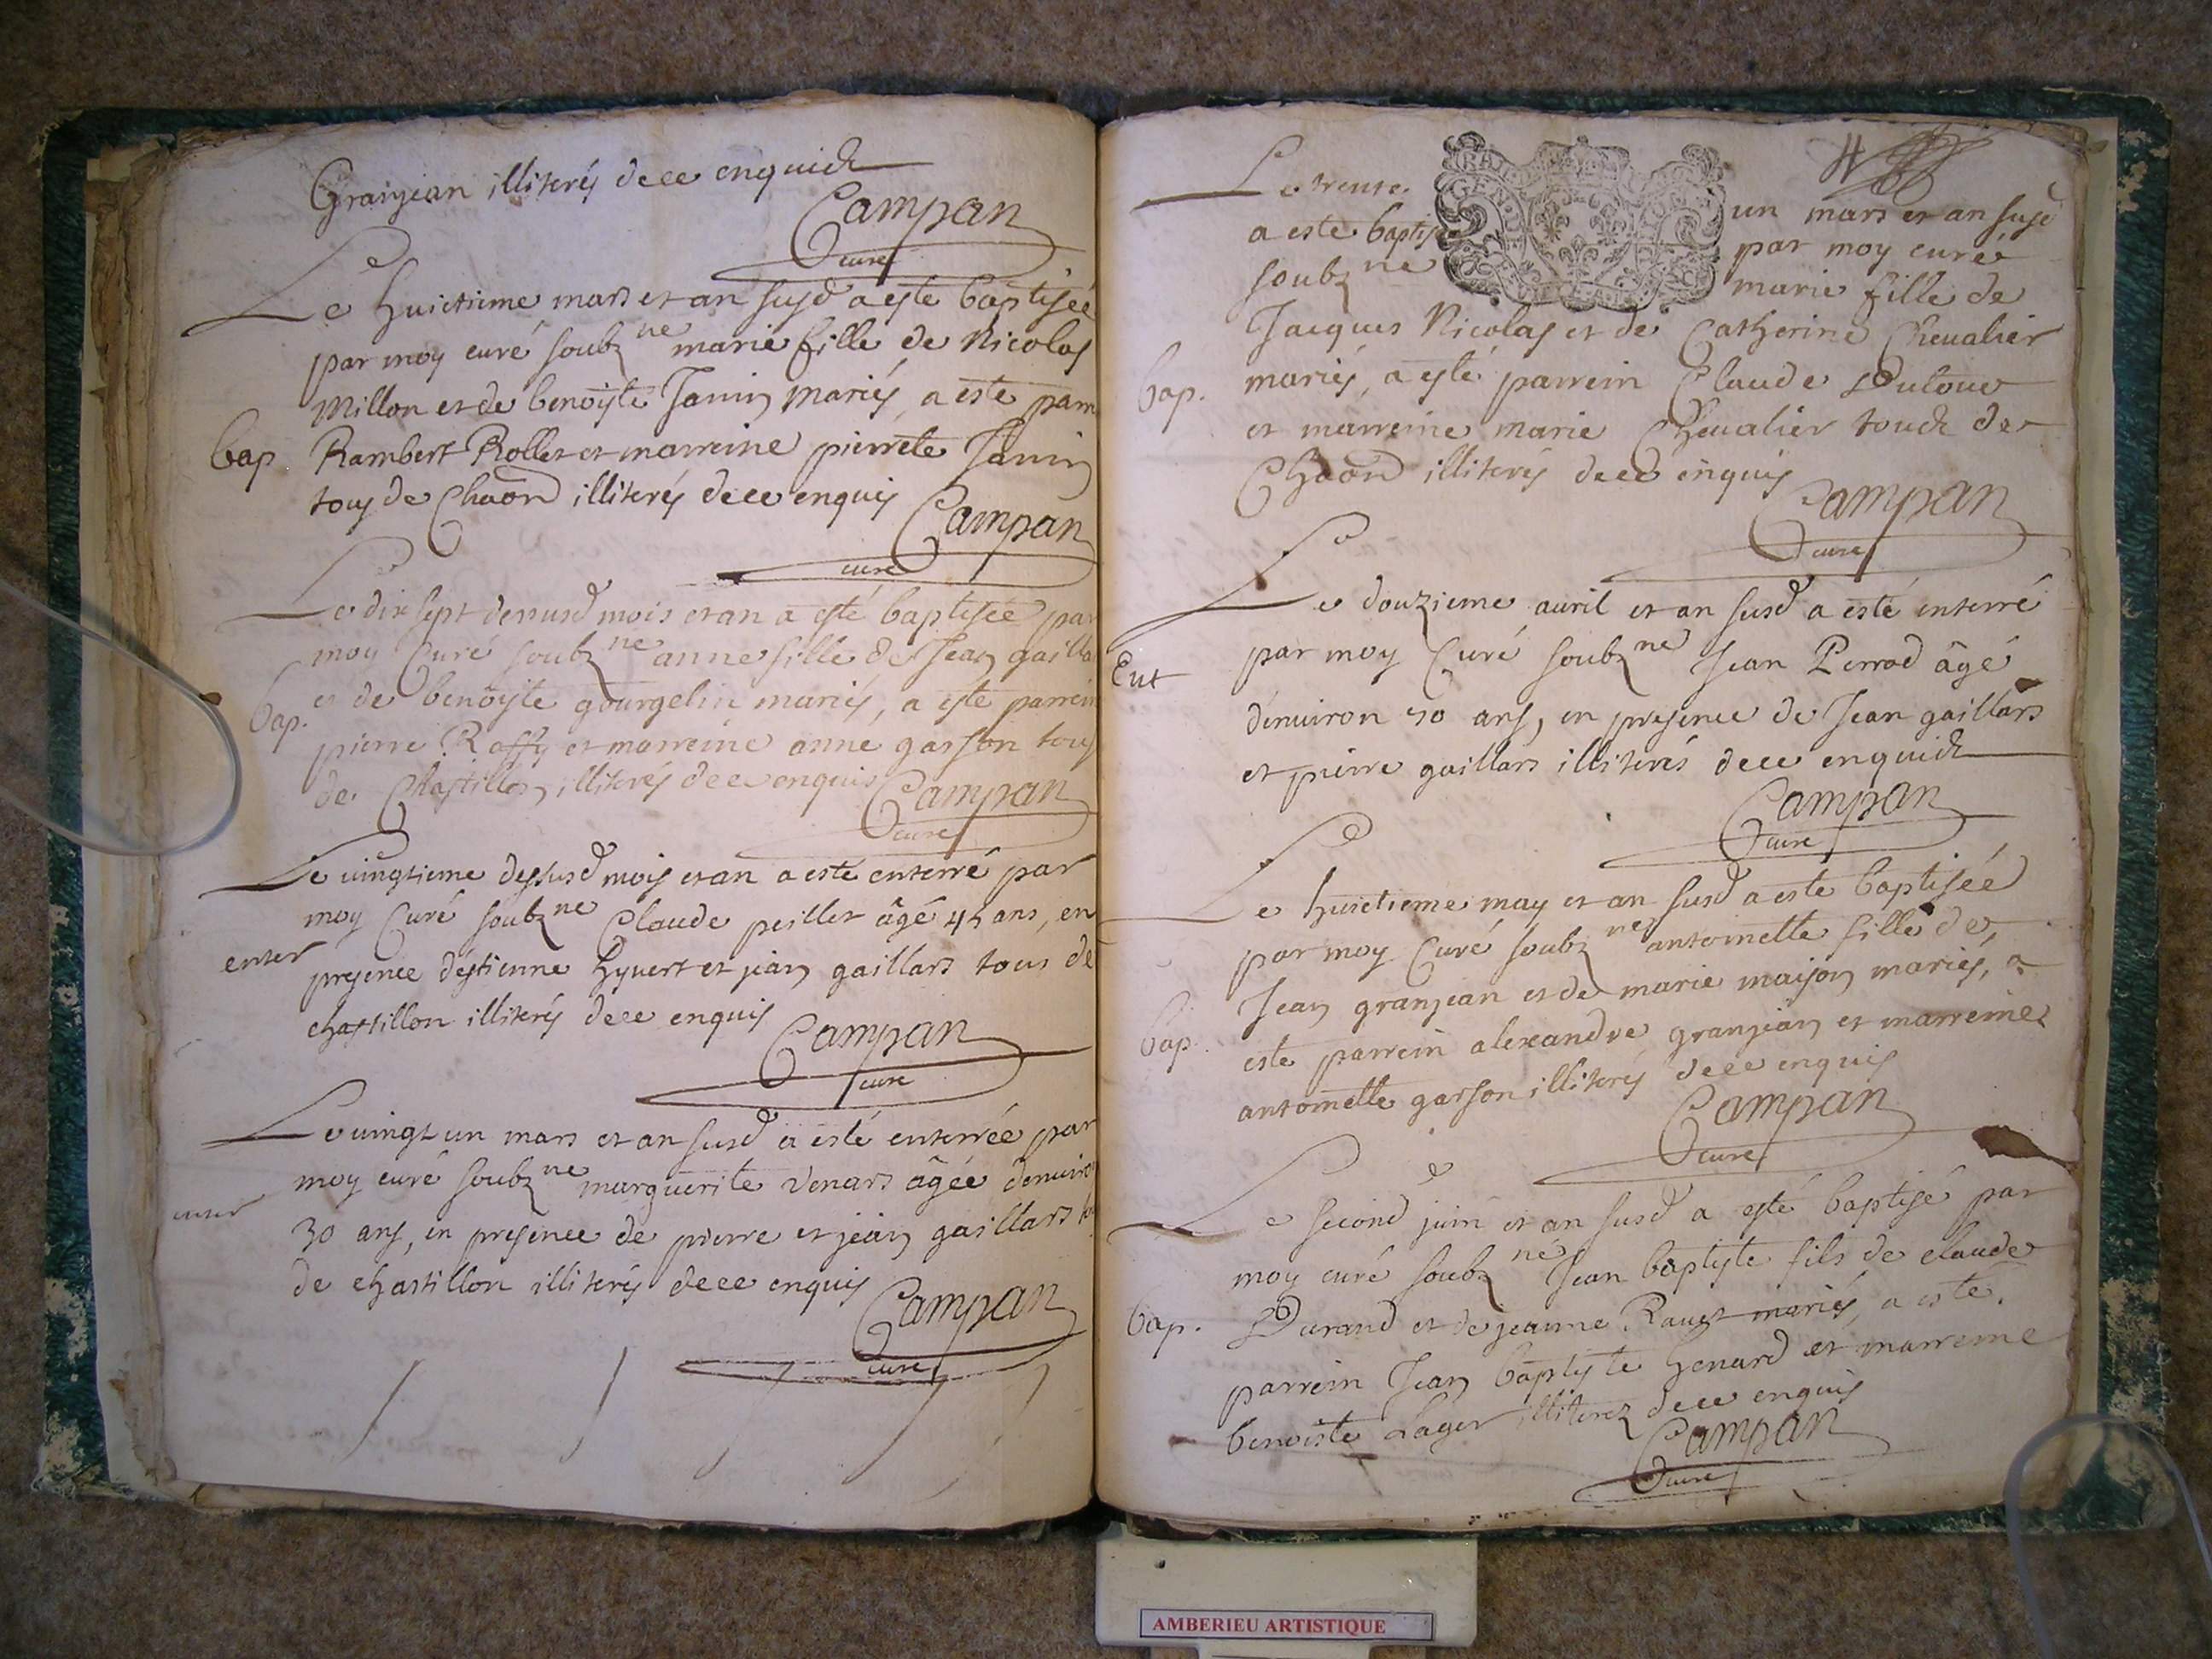 Granjean illiterés de ce enquich
Campan
curé
Le huictieme mars et an susd a esté baptisée
par moy curé soubz ne marie fille de Nicolas
Millon et de benoyste Janin mariés, a este parr
bap Rambert Rollet et marreine pierrete Janin
tous de Chaon illiterés de ce enquis
Campan
curé
Le dix sept dessusd mois et an a esté baptisée par
moy Curé soubz ne anne fille de Jean gailla
bap. et de benoyste gourgelin mariés, a este parrein
pierre Raffy et marreine anne garson tous
de Chastillon illiterés de ce enquis
Campan
curé
Le vingtieme dessusd mois et an a este enterré par
moy Curé soubz ne Claude peillet âgé 45 ans, en
enter presence d'estienne hyvert et jean gaillars tous de
chastillon illiterés de ce enquis
Campan
curé
Le vingt un mars et an susd a esté enterrée par
moy curé soubz ne marguerite Venars âgée denviron
enter 30 ans, en presence de pierre et jean gaillars
de chastillon illiterés de ce enquis
Campan
curé
Le trente un mars et an susd
a este baptisé par moy curé
soubz ne marie fille de
Jacques Nicolas et de Catherine Chevalier
bap. mariés, a esté parrein Claude
et marreine marie Chevalier touch de
Chaon illiterés de ce enquis
Campan
curé
Le douzieme avril et an susd a esté enterré
par moy Curé soubz ne Jean Perrod âgé
Ent
denviron 50 ans, en presence de Jean gaillars
et pierre gaillars illiterés de ce enquich
Campan
curé
Le huictieme may et an susd a este baptisée
par moy Curé soubz ne antoinette fille de
Jean granjean et de marie maison mariés, a
bap. este parrein alexandre granjean et marreine
antoinette garson illiterés de ce enquis
Campan
curé
Le second juin et an susd a esté baptisé par
moy curé soubz né Jean baptyste fils de claude
bap. Durand et de jeanne Ravet mariés, a esté
parrein Jean baptyste henard et marreine
benoiste Lager illiterez de ce enquis
Campan
curé
AMBERIEU ARTISTIQUE